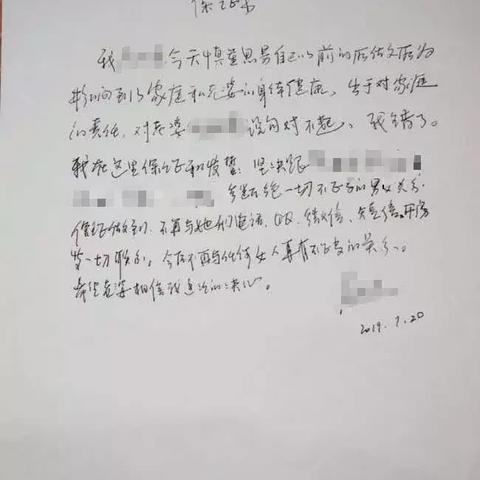 保证书
我 今天慎重思考自己以前的所做所为
影响到了家庭和老婆的身体健康，出于对家庭
的责任，对老婆 说句对不起，我错了。
我在这里保证和发誓：坚决跟
断绝一切不正当的男女关系，
保证做到，不再与她们电话、QQ、微信、短信、开房
等一切联系，今后不再与任何女人再有不正当的关系。
希望老婆相信我这次的决心。
2019.7.20